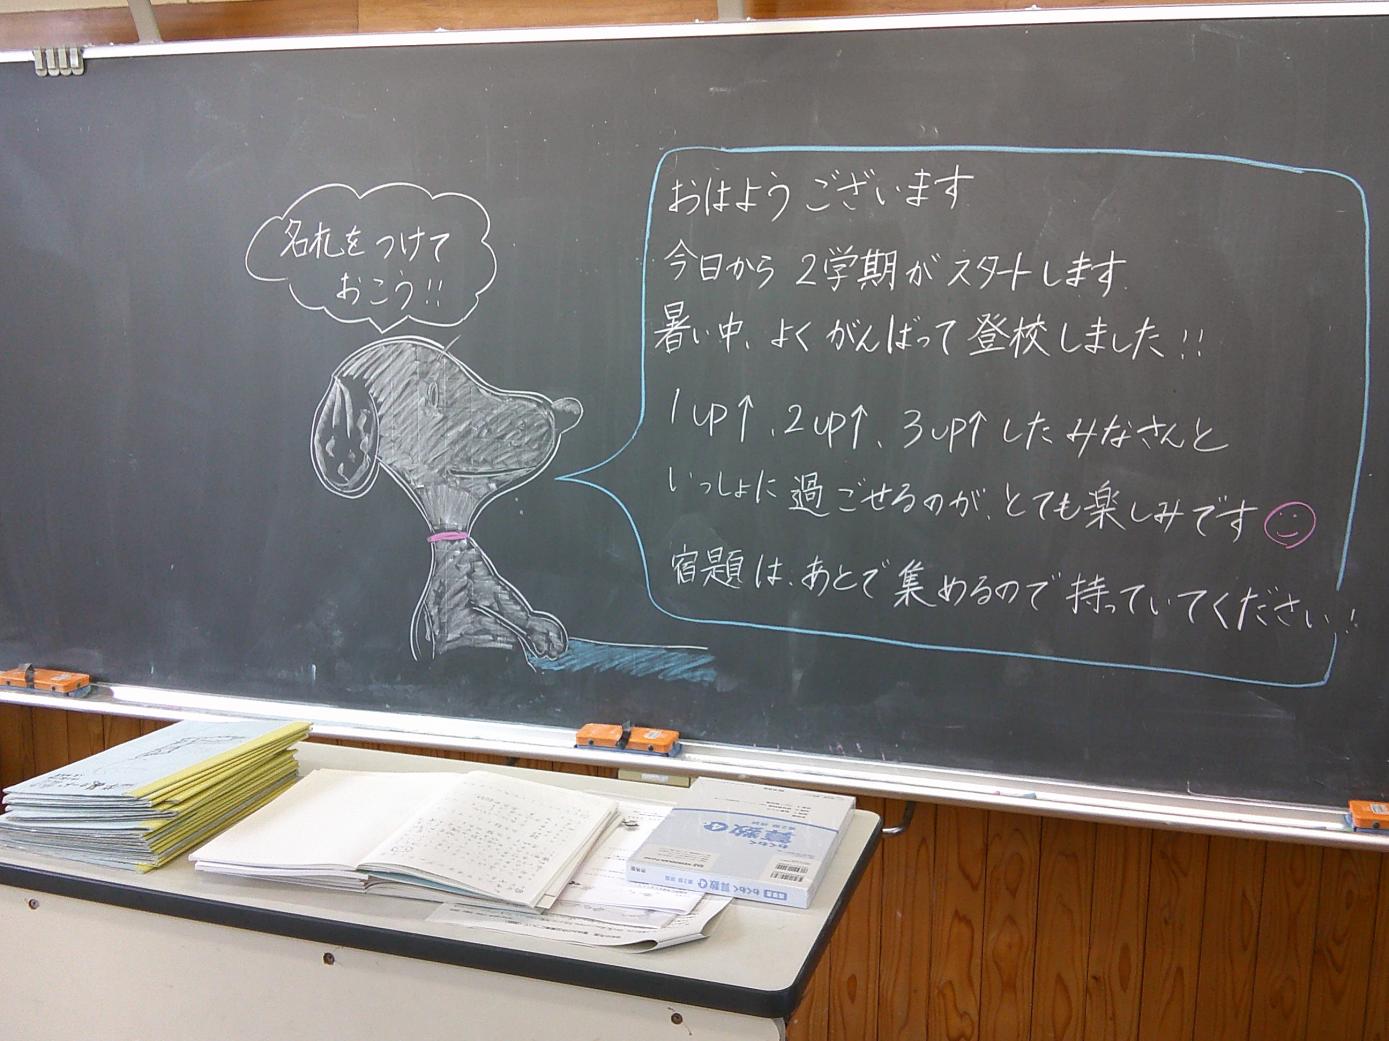 名札をつけて
おこう!!
おはようございます
今日から2学期がスタートします
暑い中、よくがんばって登校しました!!
1up↑、2up↑、3up↑したみなさんと
いっしょに過ごせるのが、とても楽しみです
宿題は、あとで集めるので持っていてください!
わくわく
算数
わくわく算数